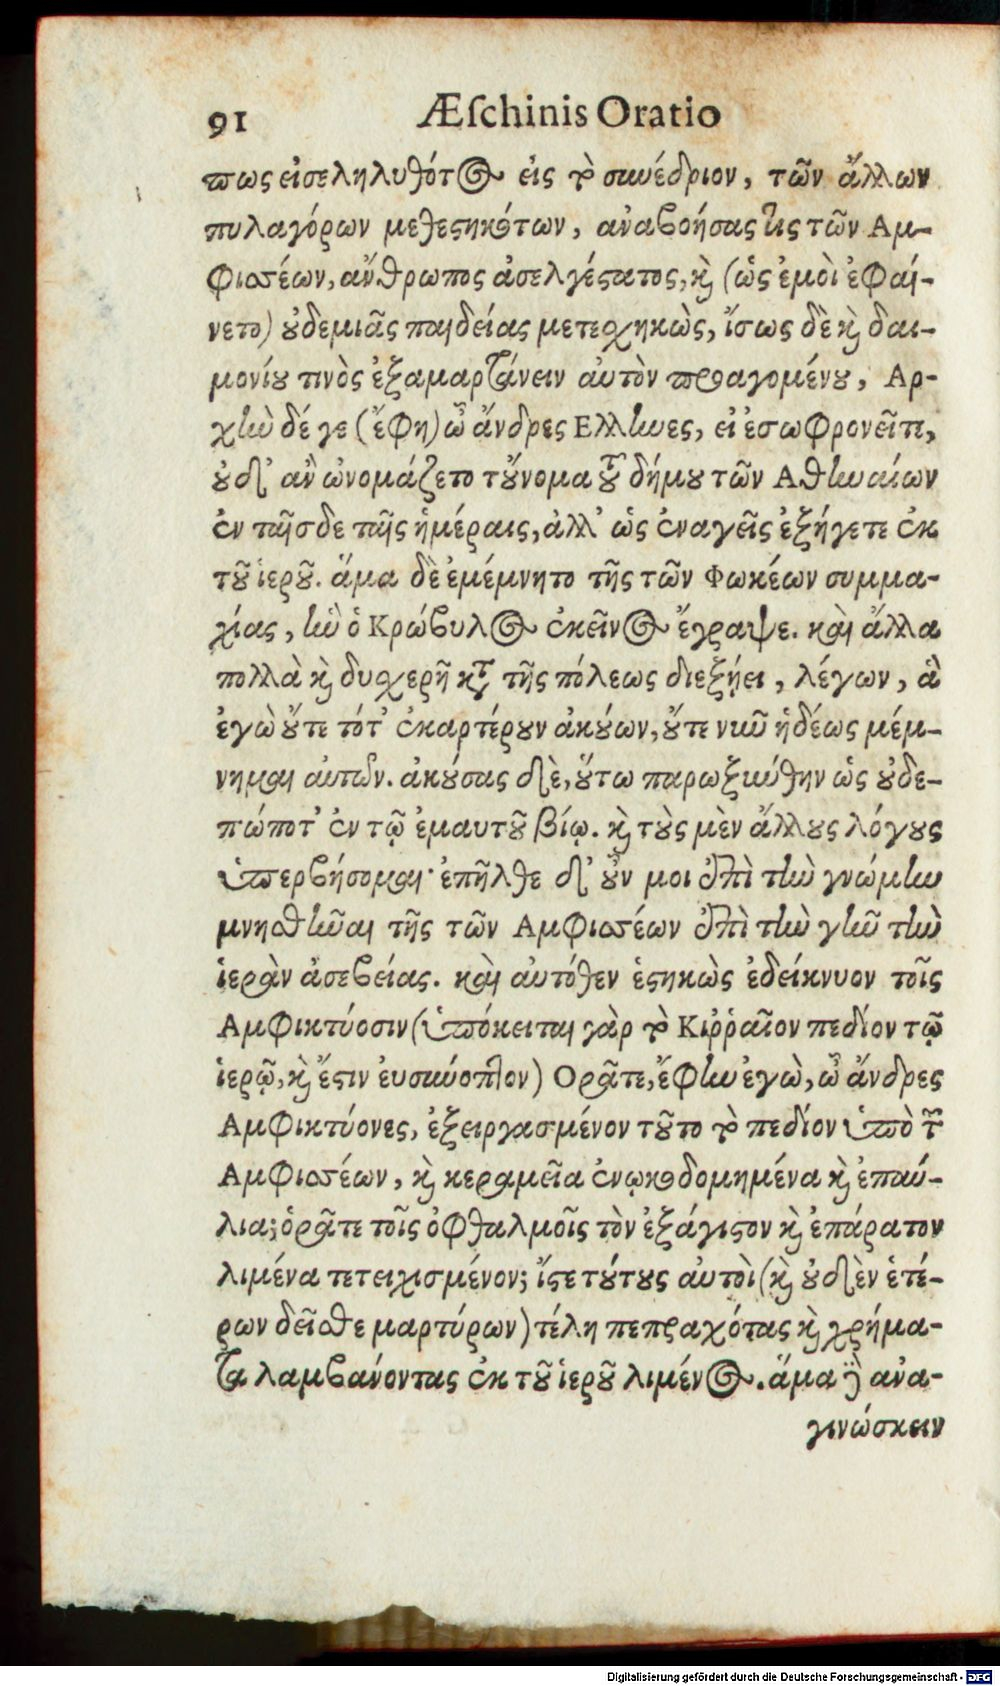 91 Æſchinis Oratio
πως εἰσεληλυθότος εἰς τὸ συνέδριον, τῶν ἄλλων
πυλαγόρων μεθεστηκότων, ἀναβοήσας τις τῶν Αμ-
φισσέων, ἄνθρωπος ἀσελγέστατος, καὶ (ὡς ἐμοὶ ἐφαί-
νετο) οὐδεμιᾶς παιδείας μετεσχηκὼς, ἴσως δὲ καὶ δαι-
μονίου τινὸς ἐξαμαρτάνειν αὐτὸν προαγομένου, Αρ-
χὴν δέ γε (ἔφη) ὦ ἄνδρες Ελληνες, εἰ ἐσωφρονεῖτε,
οὐδ' ἂν ὠνομάζετο τοὔνομα τοῦ δήμου τῶν Αθηναίων
ἐν ταῖσδε ταῖς ἡμέραις, ἀλλ' ὡς ἐναγεῖς ἐξήγετε ἐκ
τοῦ ἱεροῦ. ἅμα δὲ ἐμέμνητο τῆς τῶν Φωκέων συμμα-
χίας, ἣν ὁ Κρώβυλος ἐκεῖνος ἔγραψε. καὶ ἄλλα
πολλὰ καὶ δυσχερῆ κατὰ τῆς πόλεως διεξῄει, λέγων, ἃ
ἐγὼ οὔτε τότ' ἐκαρτέρουν ἀκούων, οὔτε νῦν ἡδέως μέμ-
νημαι αὐτῶν. ἀκούσας δὲ, οὕτω παρωξύνθην ὡς οὐδε-
πώποτ' ἐν τῷ ἐμαυτοῦ βίῳ. καὶ τοὺς μὲν ἄλλους λόγους
ὑπερβήσομαι· ἐπῆλθε δ' οὖν μοι ἐπὶ τὴν γνώμην
μνησθῆναι τῆς τῶν Αμφισσέων ἐπὶ τὴν γῆν τὴν
ἱερὰν ἀσεβείας. καὶ αὐτόθεν ἑστηκὼς ἐδείκνυον τοῖς
Αμφικτύοσιν (ὑπόκειται γὰρ τὸ Κιῤῥαῖον πεδίον τῷ
ἱερῷ, καὶ ἔστιν εὐσύνοπτον) Ορᾶτε, ἔφην ἐγὼ, ὦ ἄνδρες
Αμφικτύονες, ἐξειργασμένον τοῦτο τὸ πεδίον ὑπὸ τῶν
Αμφισσέων, καὶ κεραμεῖα ἐνῳκοδομημένα καὶ ἐπαύ-
λια; ὁρᾶτε τοῖς ὀφθαλμοῖς τὸν ἐξάγιστον καὶ ἐπάρατον
λιμένα τετειχισμένον; ἴστε τούτους αὐτοὶ (καὶ οὐδὲν ἑτέ-
ρων δεῖσθε μαρτύρων) τέλη πεπραχότας καὶ χρήμα-
τα λαμβάνοντας ἐκ τοῦ ἱεροῦ λιμένος. ἅμα δὲ ἀνα-
γινώσκειν
Digitalisierung gefördert durch die Deutsche Forschungsgemeinschaft - DFG